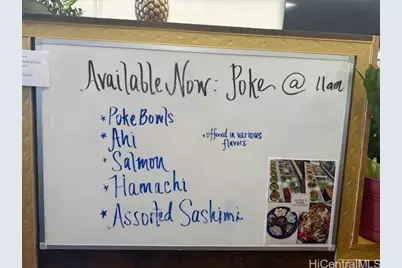 Available Now: Poke @ 11am
* Poke Bowls
* Ahi
* offered in various
flavors
* Salmon
* Hamachi
* Assorted Sashimi
HiCentralMLS